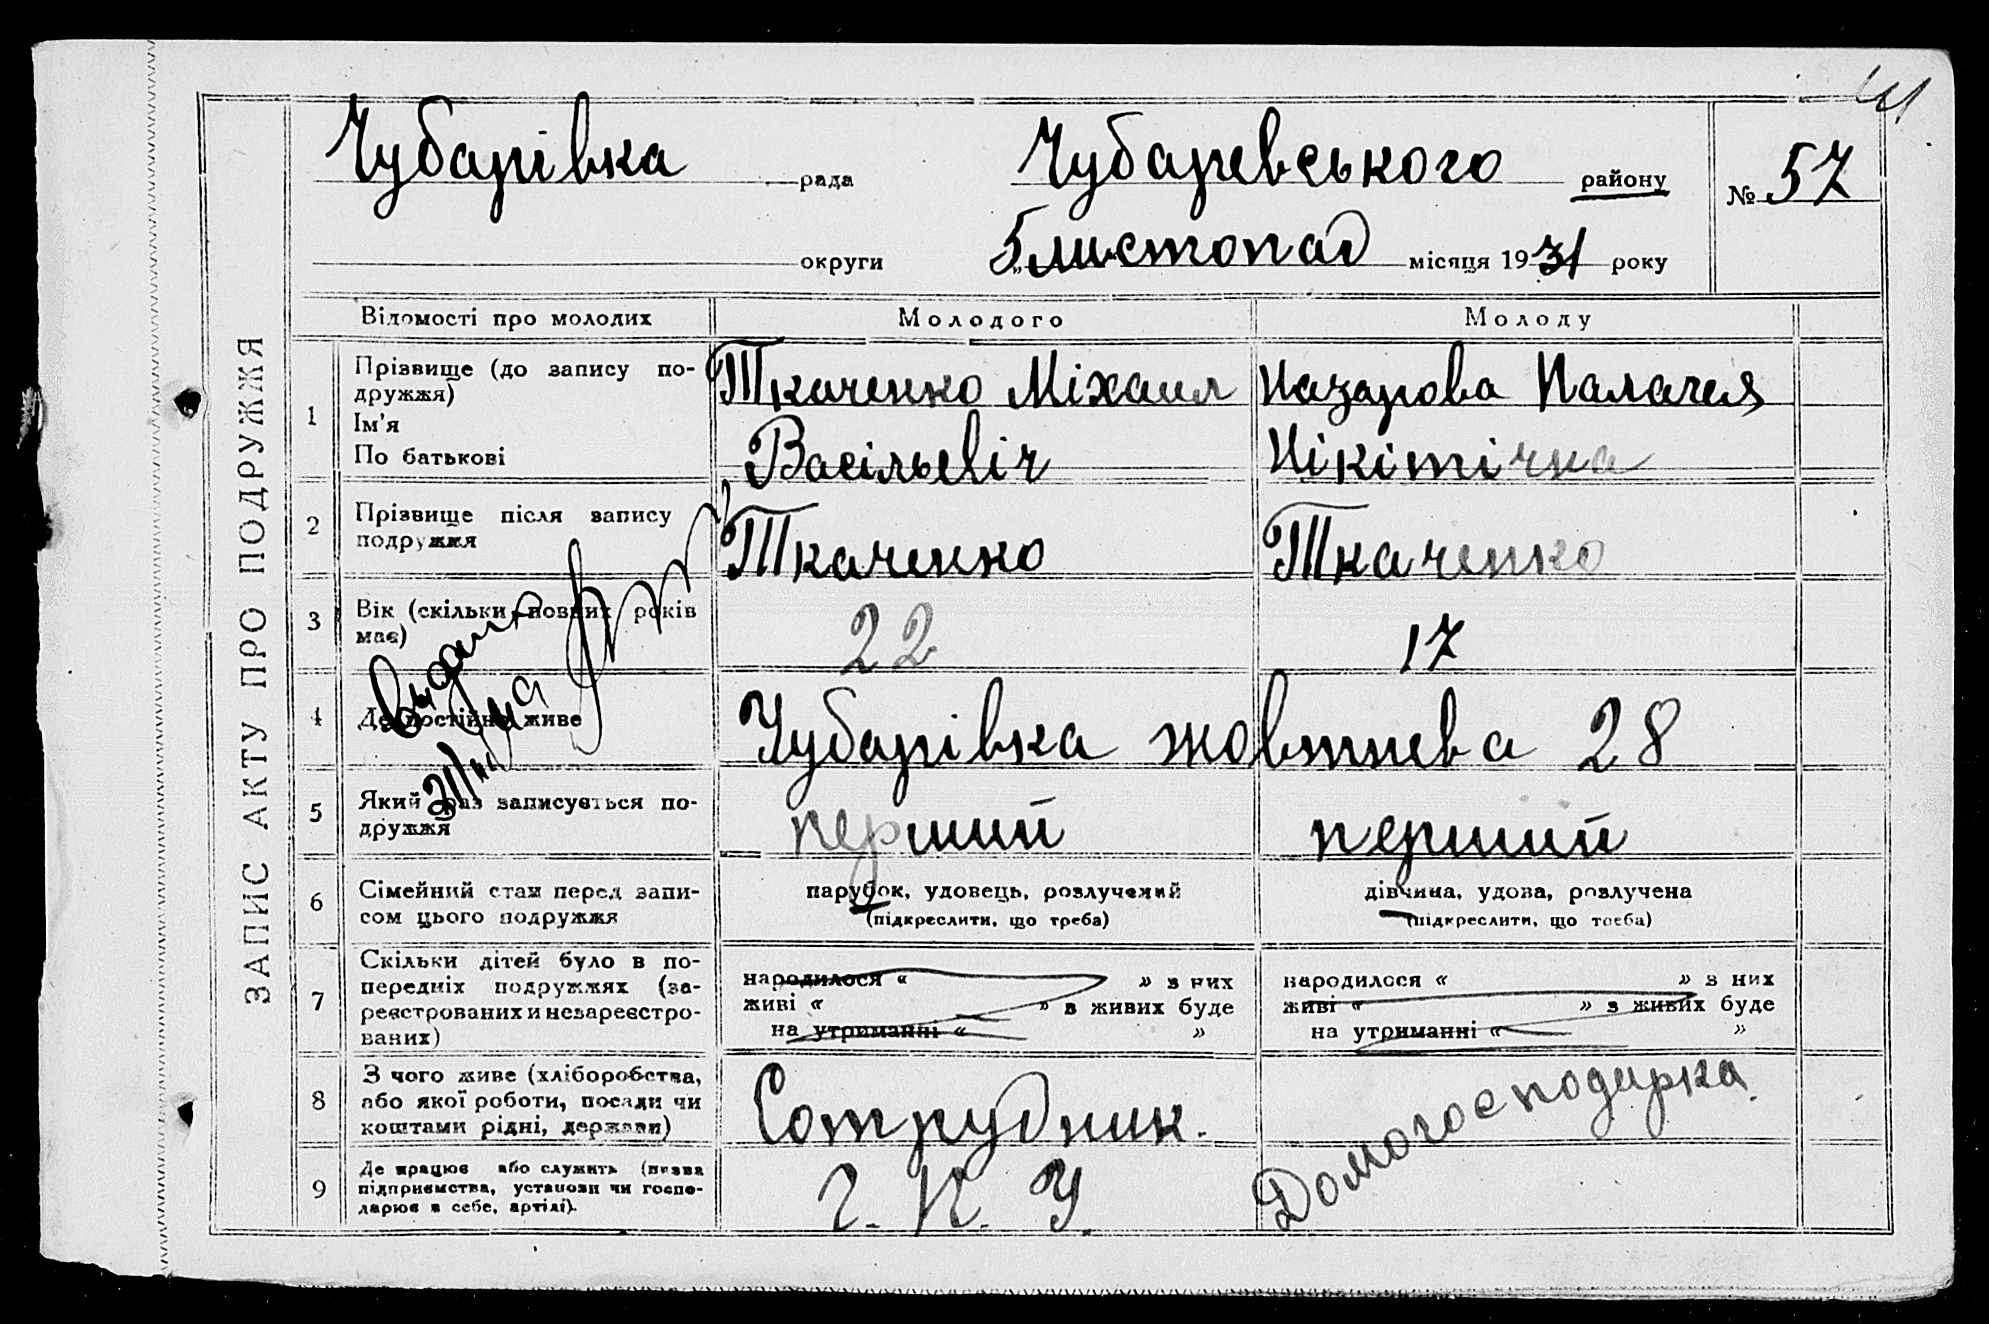 ЗАПИС АКТУ ПРО ПОДРУЖЖЯ
Чубарівка рада
Чубаревського району
№ 57
округи
„5 листопад місяця 1931 року
Відомості про молодих
Молодого
Молоду
1
Прізвище (до запису по-
дружжя)
Ім'я
По батькові
Ткаченко Міхаил
Васільевіч
Назарова Палагея
Нікітічна
2
Прізвище після запису
подружжя
Ткаченко
Ткаченко
3
Вік (скільки повних років
має)
22
17
4
Де постійно живе
Чубарівка жовтнева 28
5
Який раз записується по-
дружжя
перший
перший
6
Сімейний стан перед запи-
сом цього подружжя
парубок, удовець, розлучений
(підкреслити, що треба)
дівчина, удова, розлучена
(підкреслити, що треба)
7
Скільки дітей було в по-
передніх подружжях (за-
реєстрованих и незареєстро-
ваних)
народилося « » з них
живі « » в живих буде
на утриманні « »
народилося « » з них
живі « » з живих буде
на утриманні « »
8
З чого живе (хліборобства,
або якої роботи, посади чи
коштами рідні, держави)
Сотрудник.
Домогосподарка
9
Де працює або служить (назва
підприємства, установи чи госпо-
дарює в себе, артілі).
Г. П. У.